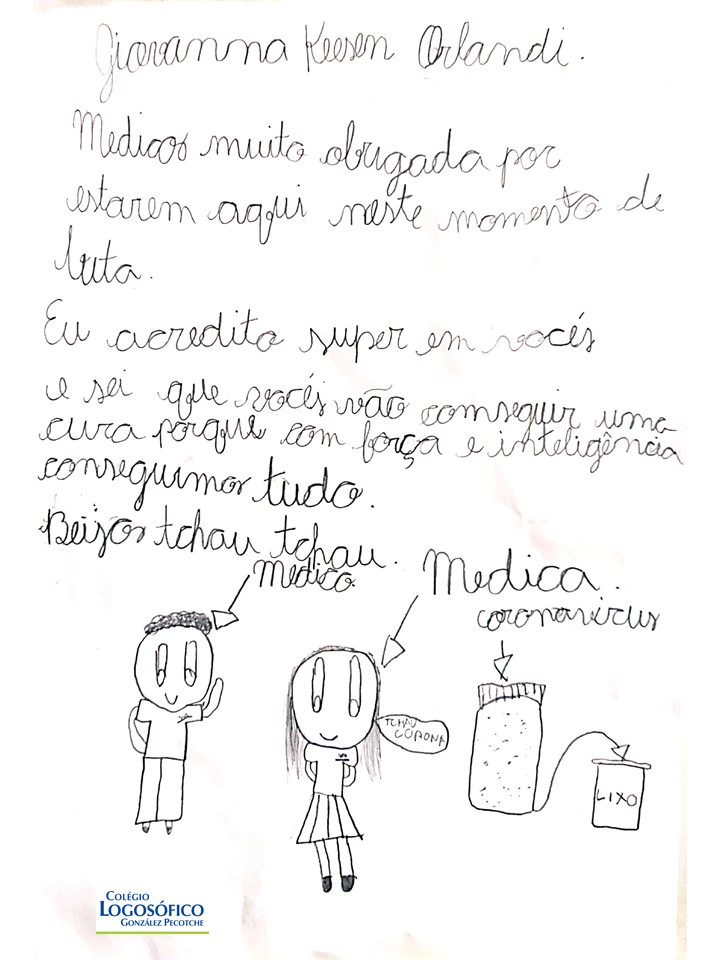 Giovanna Keesen Orlandi.
Medicos muito obrigada por
estarem aqui neste momento de
luta.
Eu acredito super em vocés
e sei que vocés vão conseguir uma
cura porque com força e inteligência
conseguimos tudo.
Beijos tchau tchau.
Medico.
Medica.
coronavirus
TCHAU
CORONA
LIXO
COLÉGIO
LOGOSÓFICO
GONZÁLEZ PECOTCHE